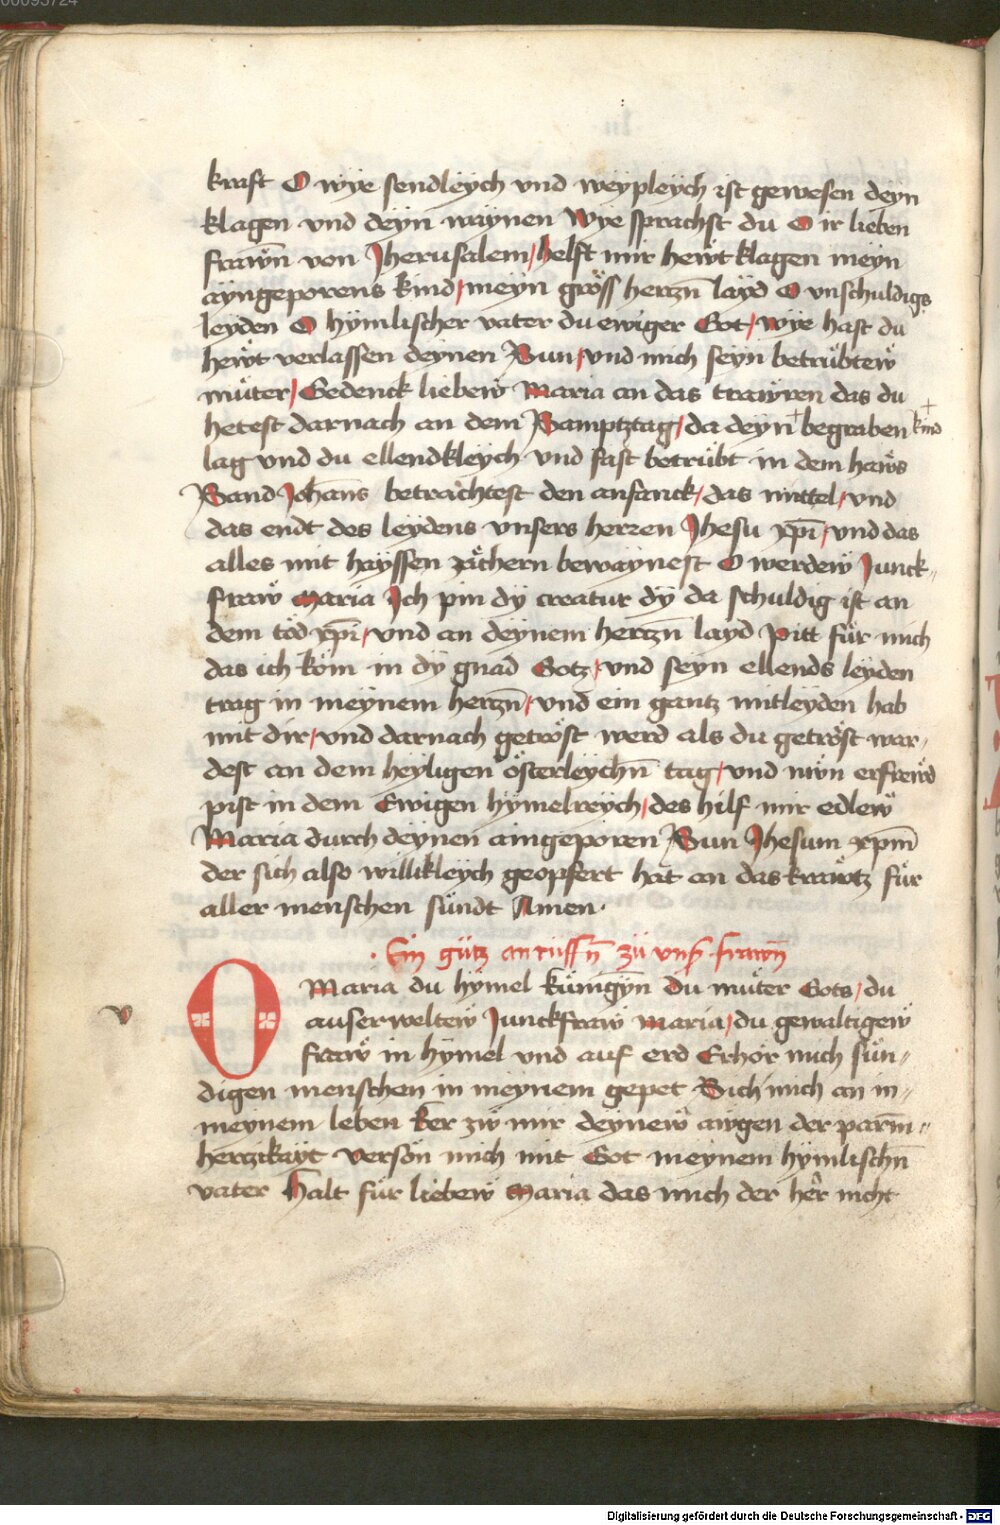 00095724
kraft O wye sendleych vnd weypleych ist gewesen deyn
klagen vnd deyn waynen Wye sprachst du O ir lieben
frawn̄ von Jherusalem / helft mir hewt klagen meyn
ayngeporens kind / meyn gröss herczn̄ layd O vnschuldigs
leyden O hymlischer vater du ewiger Got / wye hast du
hewt verlassen deynen Sun / vnd mich seyn betrübtew
müter / Gedenck liebew Maria an das trawren das du
hetest darnach an dem Samptztag / da deyn + begraben + kind
lag vnd du ellendkleych vnd fast betrübt in dem haws
Sand Johans betrachtest den anfanck / das mittel / vnd
das endt des leydens vnsers herzen Jhesu xp̄i / vnd das
alles mit hayssen zächern bewaynest O werdew Junck-
fraw Maria Ich pin dy creatur dy da schuldig ist an
dem töd xp̄i / vnd an deynem herczn̄ layd Pitt für mich
das ich köm in dy gnad Gotz / vnd seyn ellends leyden
trag in meynem herczn̄ / vnd ein gantz mitleyden hab
mit dir / vnd darnach getröst werd als du getröst war-
dest an dem heyligen österleychn̄ tag / vnd nwn erfrewd
pist in dem Ewigen hymelreych / des hilf mir edlew
Maria durch deynen aingeporen Sun Jhesum xp̄m
der sich also willikleych geopfert hat an das krawtz für
aller menschen sündt Amen.
Ein gütz anrüffn̄ zü vnß frawn̄
O Maria du hymel künigyn Du müter Gots / du
auserweltew Junckfraw Maria / du gewaltigew
fraw in hymel vnd auf erd Erhör mich sün-
digen menschen in meynem gepet Sich mich an in-
meynem leben Ker zw mir deynew awgen der parm̄-
herczikayt Versön mich mit Got meynem hymlischn̄
vater Halt für liebew Maria das mich der her nicht
Digitalisierung gefördert durch die Deutsche Forschungsgemeinschaft - DFG